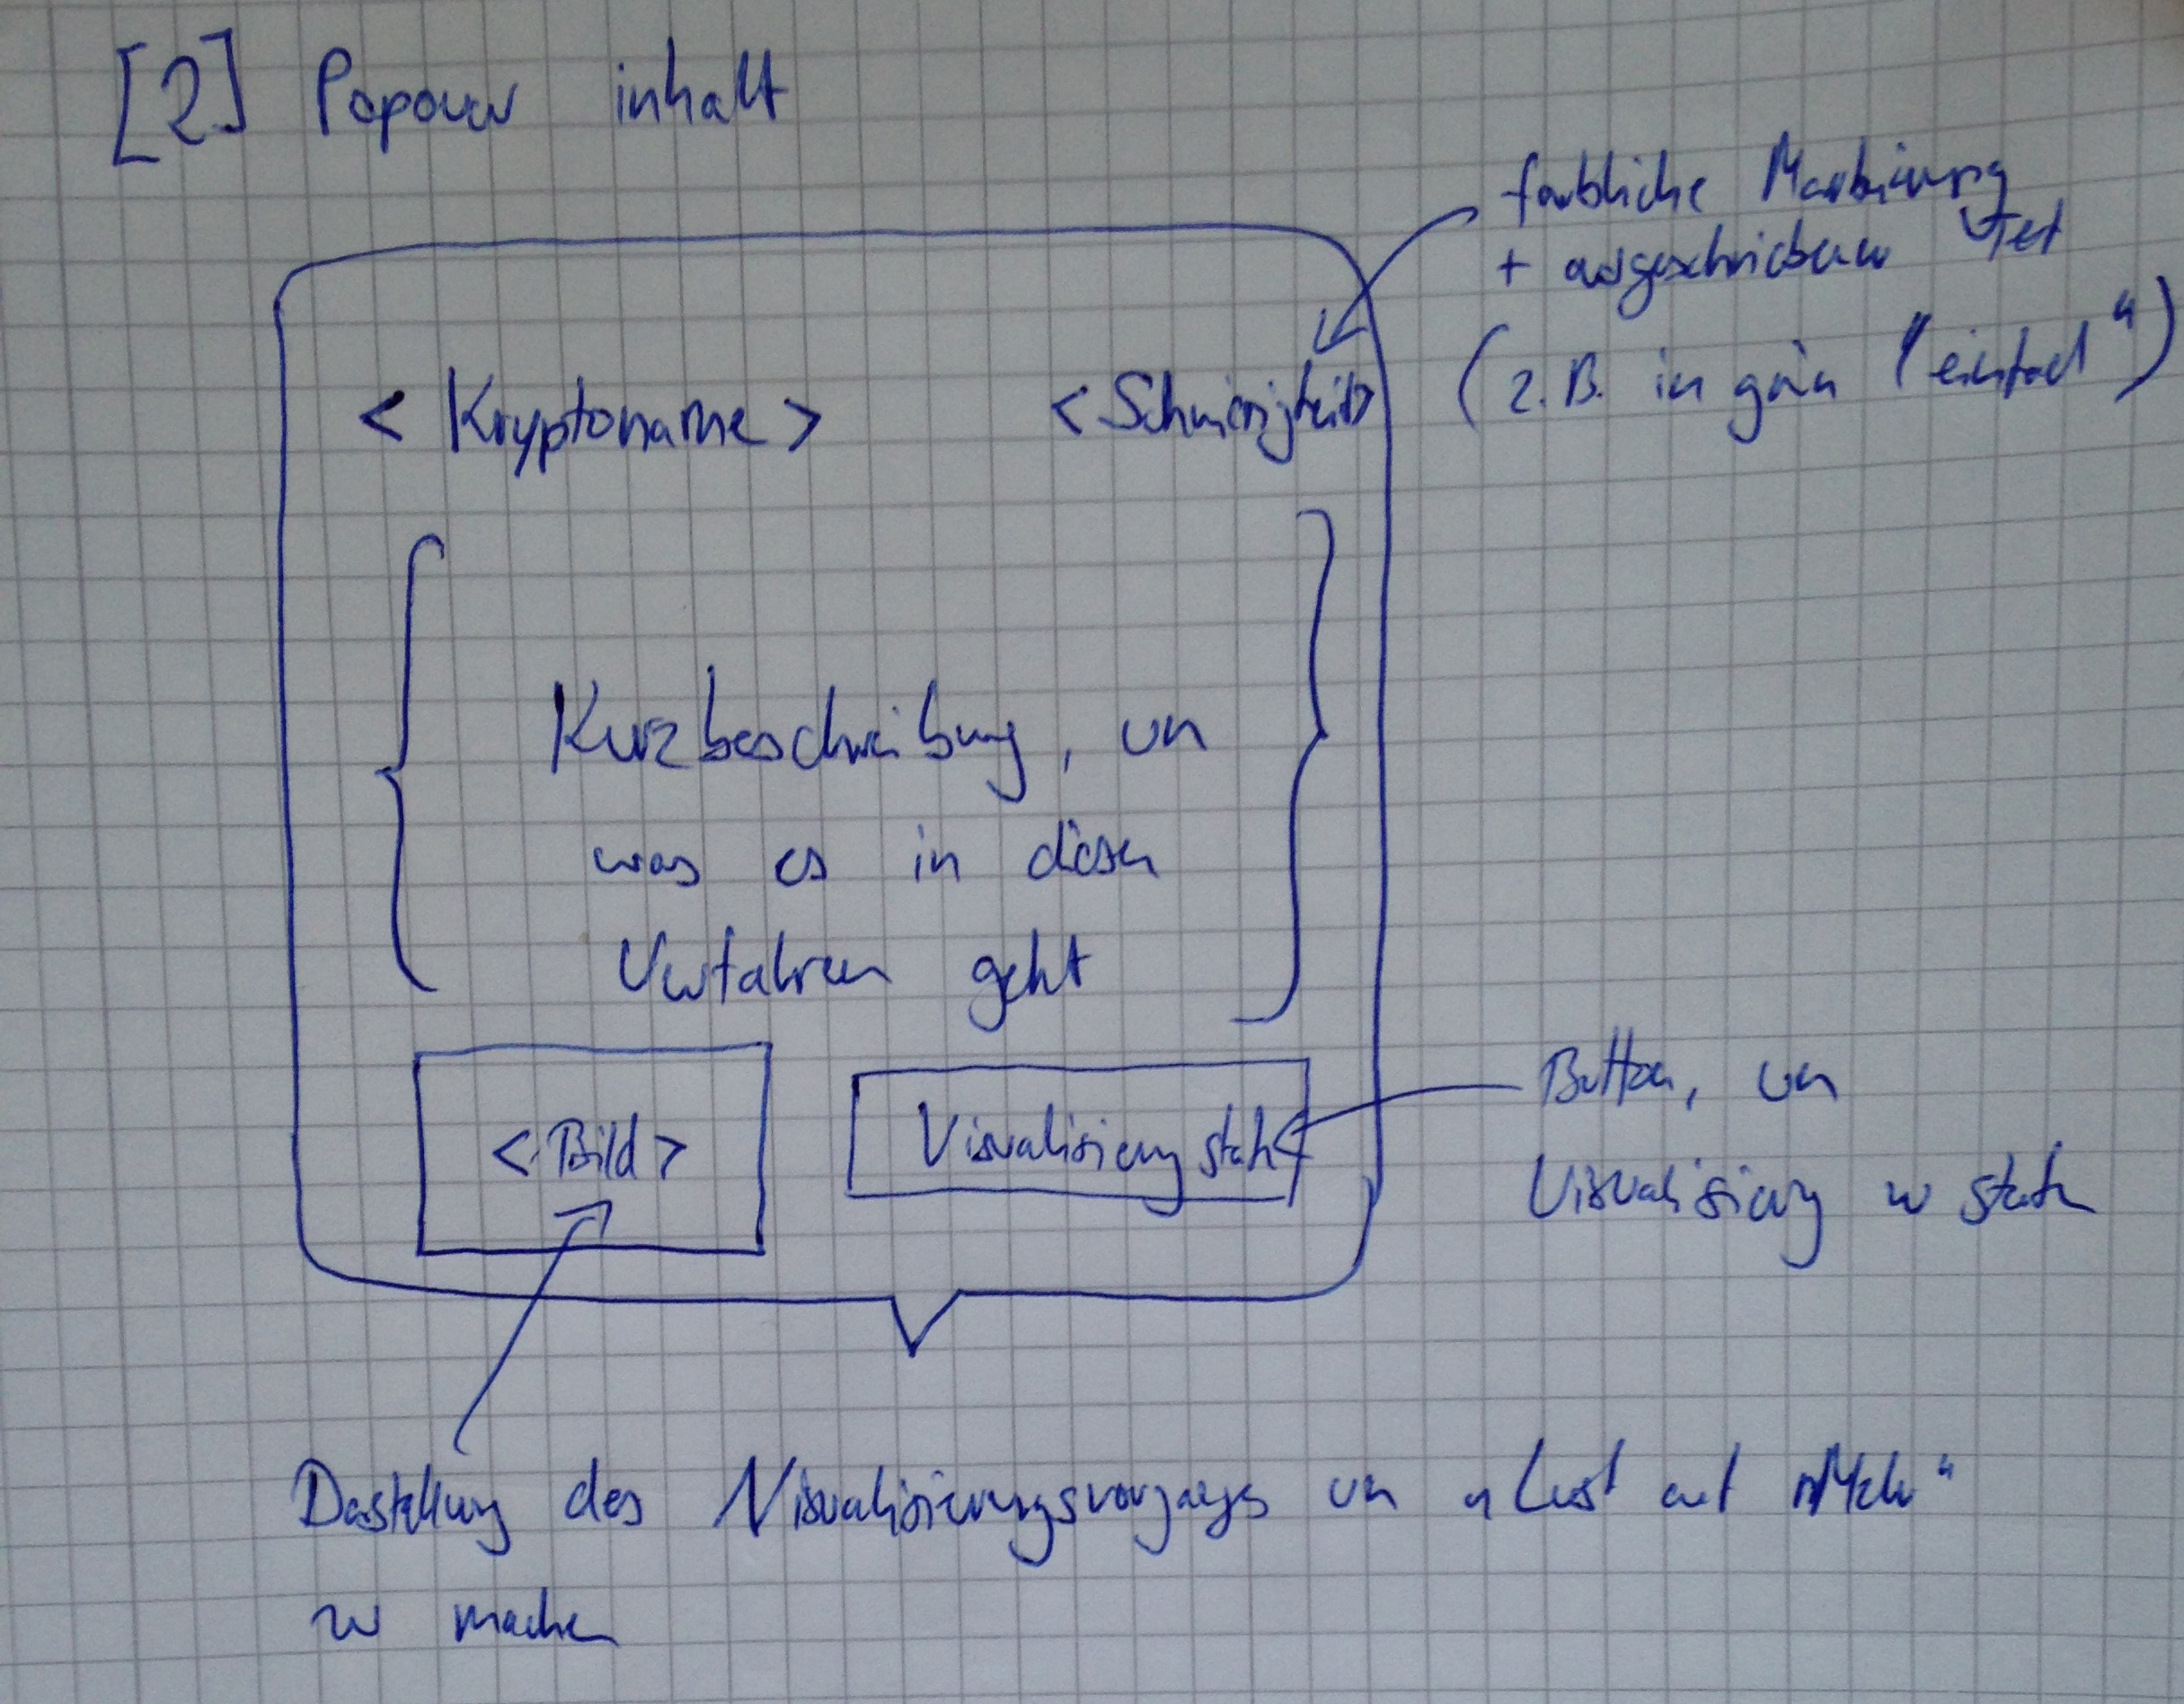 [2] Popover inhalt
farbliche Markierung
+ ausgeschriebener Text
(z.B. in grün "einfach")
< Kryptoname > < Schwierigkeit>
Kurzbeschreibung, um
was es in diesem
Verfahren geht
< Bild >
Visualisierung starten
Button, um
Visualisierung zu starten
Darstellung des Visualisierungsvorgangs um "Lust auf Mehr"
zu machen